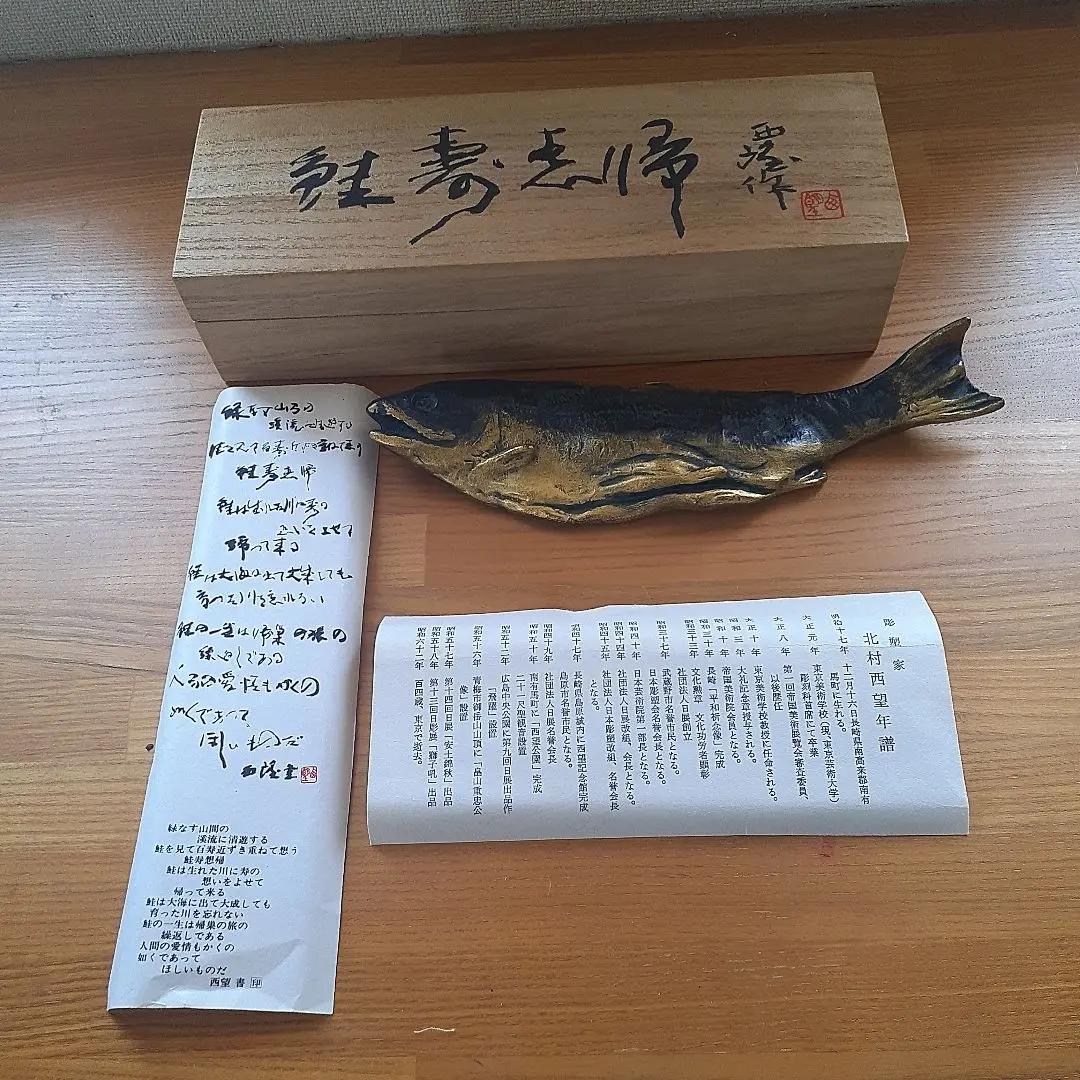 鮭寿志帰
西望作
緑なす山間の
渓流に清遊する
鮭を見て百寿近ずき重ねて想う
鮭寿志帰
鮭は生れた川に寿の
想いをよせて
帰って来る
鮭は大海に出て大成しても
育った川を忘れない
鮭の一生は帰巣の旅の
繰返しである
人間の愛情もかくの
如くであって
ほしいものだ
西望書
緑なす山間の
渓流に清遊する
鮭を見て百寿近ずき重ねて想う
鮭寿想帰
鮭は生れた川に寿の
想いをよせて
帰って来る
鮭は大海に出て大成しても
育った川を忘れない
鮭の一生は帰巣の旅の
繰返しである
人間の愛情もかくの
如くであって
ほしいものだ
西望 書 印
彫塑家
北村西望年譜
明治十七年 十二月十六日長崎県南高来郡南有
馬町に生れる。
大正元年 東京美術学校(現、東京芸術大学)
彫刻科首席にて卒業
大正八年 第一回帝国美術展覧会審査委員、
以後歴任
大正十年 東京美術学校教授に任命される。
昭和三年 大礼記念章授与される。
昭和十年 帝国美術院会員となる。
昭和三十年 長崎「平和祈念像」完成
昭和三十三年 文化勲章 文化功労者顕彰
社団法人日展創立
昭和三十七年 武蔵野市名誉市民となる。
日本彫塑会名誉会長となる。
昭和四十年 日本芸術院第一部長となる。
昭和四十四年 社団法人日展改組、会長となる。
昭和四十五年 社団法人日本彫塑改組、名誉会長
となる。
昭和四十七年 長崎県島原城内に西望記念館完成
島原市名誉市民となる。
昭和四十九年 社団法人日展名誉会長
昭和五十年 南有馬町に「西望公園」完成
二十一尺聖観音設置
昭和五十二年 広島中央公園に第九回日展出品作
「飛躍」設置
昭和五十六年 青梅市御岳山山頂に「畠山重忠公
像」設置
昭和五十七年 第十四回日展「安土錦秋」出品
昭和五十八年 第十三回日彫展「獅子吼」出品
昭和六十二年 百四歳、東京で逝去。